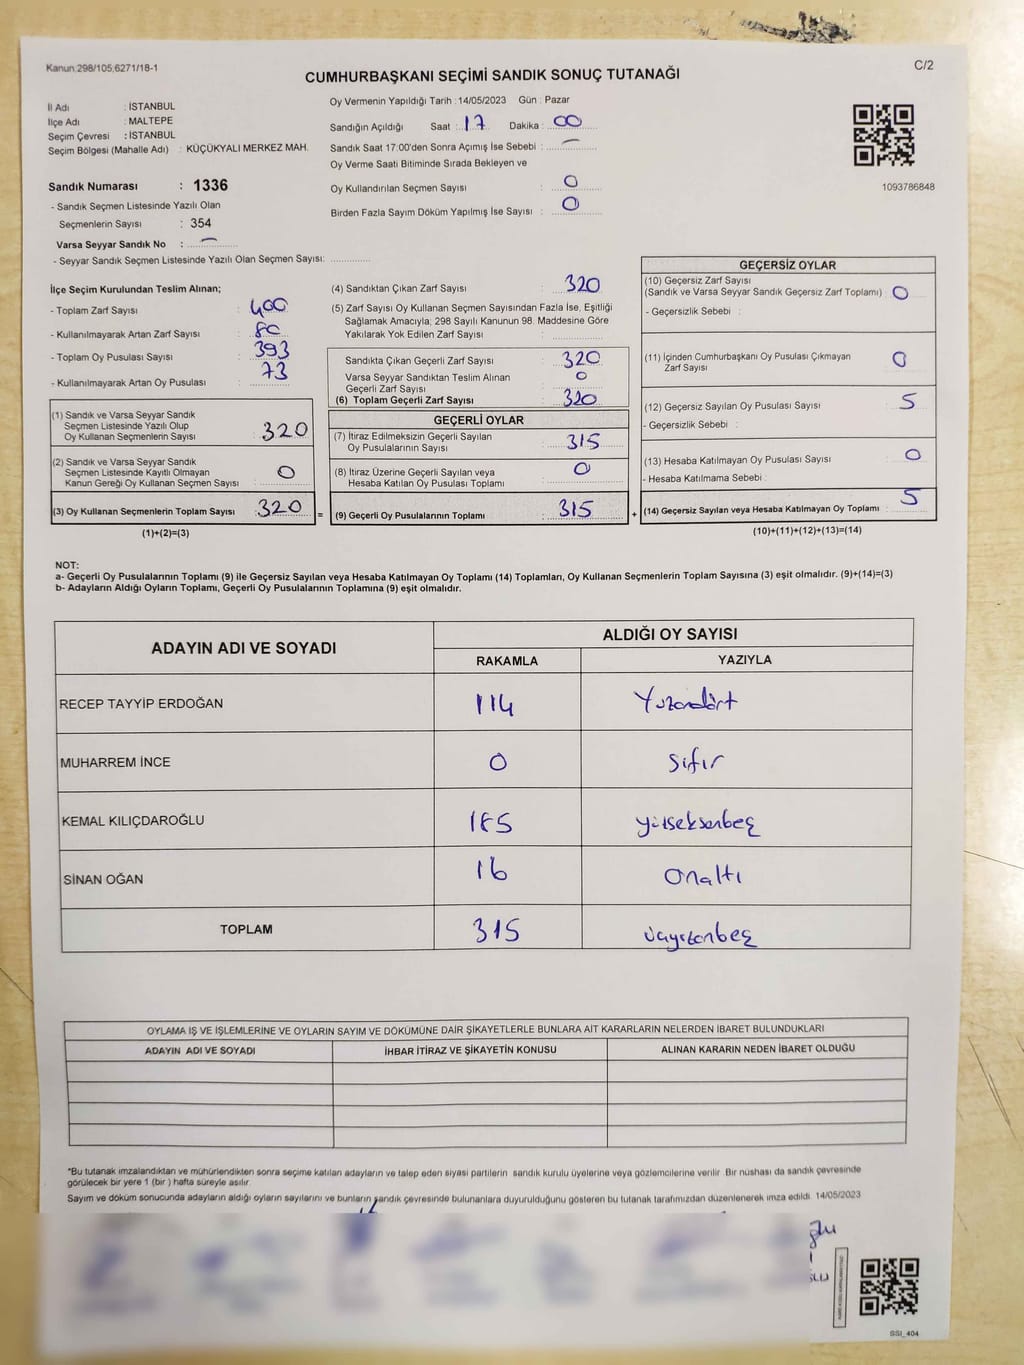 Kanun:298/105,6271/18-1
C/2
CUMHURBAŞKANI SEÇİMİ SANDIK SONUÇ TUTANAĞI
İl Adı : İSTANBUL
İlçe Adı : MALTEPE
Seçim Çevresi : İSTANBUL
Seçim Bölgesi (Mahalle Adı) : KÜÇÜKYALI MERKEZ MAH.
Sandık Numarası : 1336
- Sandık Seçmen Listesinde Yazılı Olan
Seçmenlerin Sayısı : 354
Varsa Seyyar Sandık No : —
- Seyyar Sandık Seçmen Listesinde Yazılı Olan Seçmen Sayısı:
Oy Vermenin Yapıldığı Tarih :14/05/2023 Gün : Pazar
Sandığın Açıldığı Saat : 17 Dakika : 00
Sandık Saat 17:00'den Sonra Açımış İse Sebebi : —
Oy Verme Saati Bitiminde Sırada Bekleyen ve
Oy Kullandırılan Seçmen Sayısı : 0
Birden Fazla Sayım Döküm Yapılmış İse Sayısı : 0
1093786848
İlçe Seçim Kurulundan Teslim Alınan;
- Toplam Zarf Sayısı : 400
- Kullanılmayarak Artan Zarf Sayısı : 80
- Toplam Oy Pusulası Sayısı : 393
- Kullanılmayarak Artan Oy Pusulası : 73
(1) Sandık ve Varsa Seyyar Sandık
Seçmen Listesinde Yazılı Olup
Oy Kullanan Seçmenlerin Sayısı : 320
(2) Sandık ve Varsa Seyyar Sandık
Seçmen Listesinde Kayıtlı Olmayan
Kanun Gereği Oy Kullanan Seçmen Sayısı : 0
(3) Oy Kullanan Seçmenlerin Toplam Sayısı : 320
(1)+(2)=(3)
(4) Sandıktan Çıkan Zarf Sayısı : 320
(5) Zarf Sayısı Oy Kullanan Seçmen Sayısından Fazla İse, Eşitliği
Sağlamak Amacıyla; 298 Sayılı Kanunun 98. Maddesine Göre
Yakılarak Yok Edilen Zarf Sayısı :
Sandıkta Çıkan Geçerli Zarf Sayısı : 320
Varsa Seyyar Sandıktan Teslim Alınan
Geçerli Zarf Sayısı : 0
(6) Toplam Geçerli Zarf Sayısı : 320
GEÇERLİ OYLAR
(7) İtiraz Edilmeksizin Geçerli Sayılan
Oy Pusulalarının Sayısı : 315
(8) İtiraz Üzerine Geçerli Sayılan veya
Hesaba Katılan Oy Pusulası Toplamı : 0
= (9) Geçerli Oy Pusulalarının Toplamı : 315 +
GEÇERSİZ OYLAR
(10) Geçersiz Zarf Sayısı
(Sandık ve Varsa Seyyar Sandık Geçersiz Zarf Toplamı) : 0
- Geçersizlik Sebebi :
(11) İçinden Cumhurbaşkanı Oy Pusulası Çıkmayan
Zarf Sayısı : 0
(12) Geçersiz Sayılan Oy Pusulası Sayısı : 5
- Geçersizlik Sebebi :
(13) Hesaba Katılmayan Oy Pusulası Sayısı : 0
- Hesaba Katılmama Sebebi :
(14) Geçersiz Sayılan veya Hesaba Katılmayan Oy Toplamı : 5
(10)+(11)+(12)+(13)=(14)
NOT:
a- Geçerli Oy Pusulalarının Toplamı (9) ile Geçersiz Sayılan veya Hesaba Katılmayan Oy Toplamı (14) Toplamları, Oy Kullanan Seçmenlerin Toplam Sayısına (3) eşit olmalıdır. (9)+(14)=(3)
b- Adayların Aldığı Oyların Toplamı, Geçerli Oy Pusulalarının Toplamına (9) eşit olmalıdır.
ADAYIN ADI VE SOYADI ALDIĞI OY SAYISI
RAKAMLA YAZIYLA
RECEP TAYYİP ERDOĞAN 114 Yüzondört
MUHARREM İNCE 0 Sıfır
KEMAL KILIÇDAROĞLU 185 yüzseksenbeş
SİNAN OĞAN 16 Onaltı
TOPLAM 315 üçyüzonbeş
OYLAMA İŞ VE İŞLEMLERİNE VE OYLARIN SAYIM VE DÖKÜMÜNE DAİR ŞİKAYETLERLE BUNLARA AİT KARARLARIN NELERDEN İBARET BULUNDUKLARI
ADAYIN ADI VE SOYADI İHBAR İTİRAZ VE ŞİKAYETİN KONUSU ALINAN KARARIN NEDEN İBARET OLDUĞU
*Bu tutanak imzalandıktan ve mühürlendikten sonra seçime katılan adayların ve talep eden siyasi partilerin sandık kurulu üyelerine veya gözlemcilerine verilir. Bir nüshası da sandık çevresinde
görülecek bir yere 1 (bir ) hafta süreyle asılır.
Sayım ve döküm sonucunda adayların aldığı oyların sayılarını ve bunların sandık çevresinde bulunanlara duyurulduğunu gösteren bu tutanak tarafımızdan düzenlenerek imza edildi. 14/05/2023
SSI_404